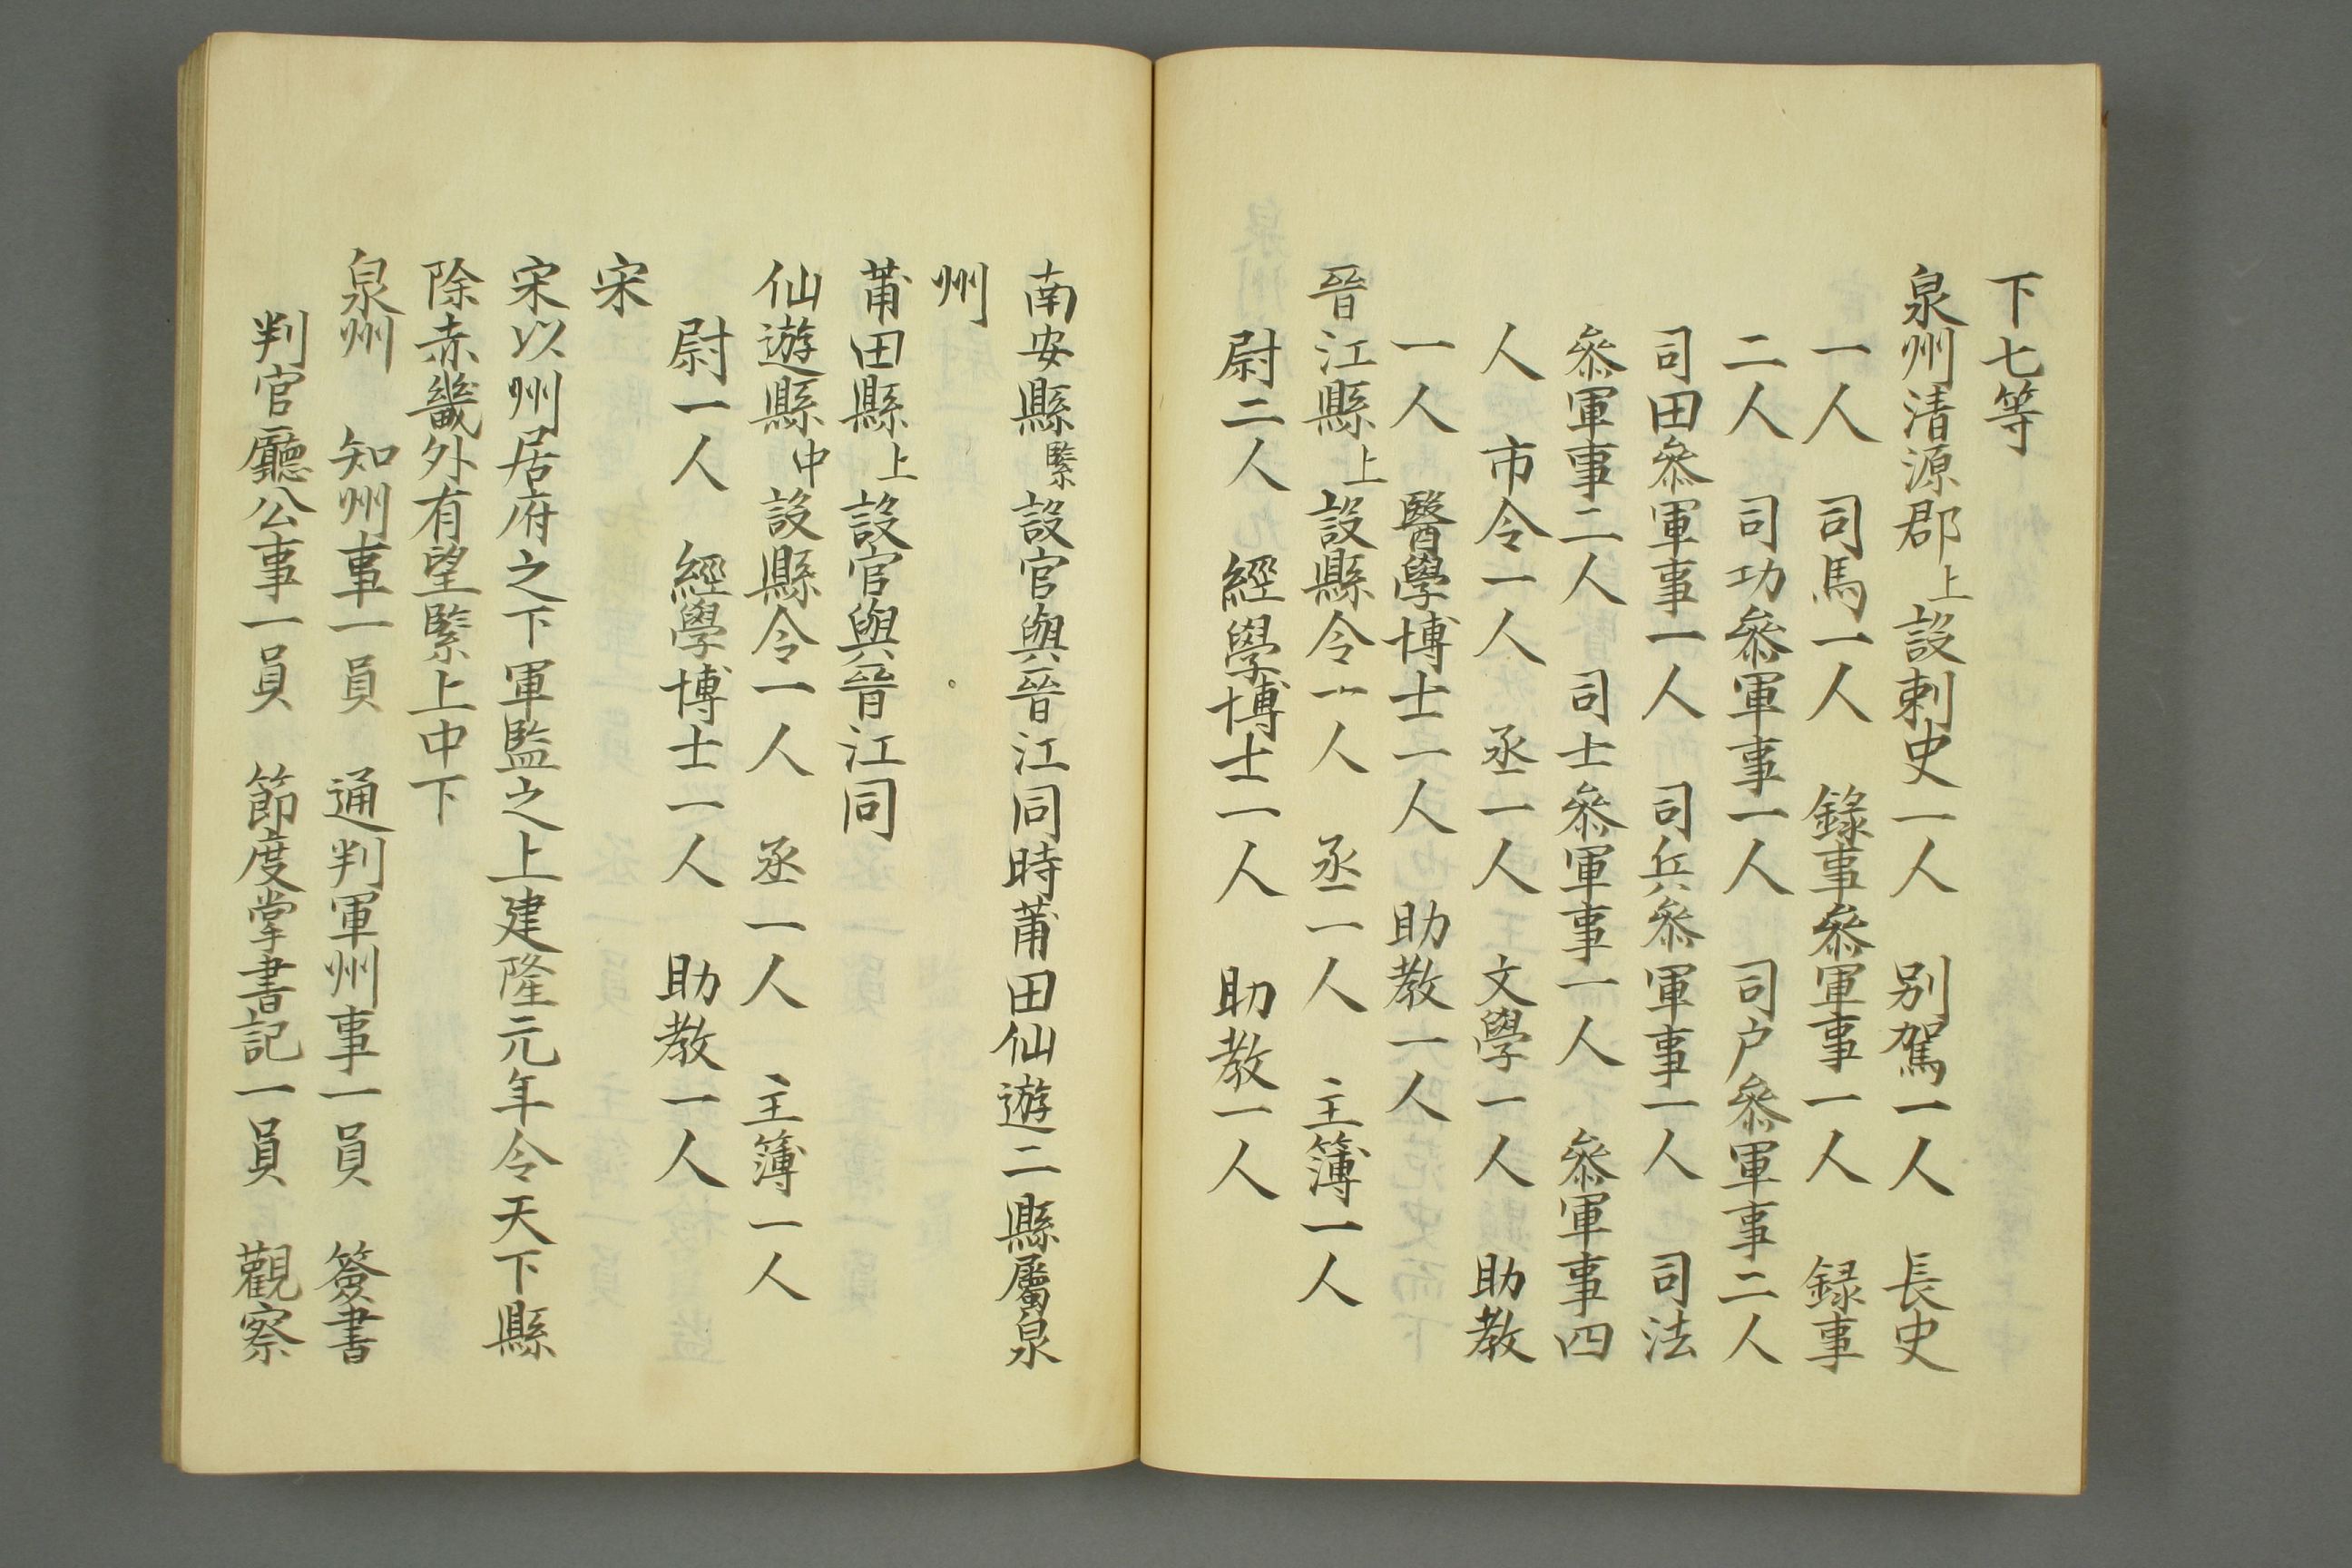 下七等
泉州清源郡上設刺史一人　别駕一人　長史
一人　司馬一人　錄事參軍事一人　録事
二人　司功參軍事一人　司户參軍事二人
司田參軍事一人　司兵參軍事一人　司法
參軍事二人　司士參軍事一人　參軍事四
人　市令一人　丞一人　文學一人　助教
一人　醫學博士一人　助教一人
晉江縣上設縣令一人　丞一人　主簿一人
尉二人　經學博士一人　助教一人
南安縣緊設官與晉江同時莆田仙遊二縣屬泉
州
莆田縣上設官與晉江同
仙遊縣中設縣令一人　丞一人　主簿一人
尉一人　經學博士一人　助教一人
宋
宋以州居府之下軍監之上建隆元年令天下縣
除赤畿外有望緊上中下
泉州　知州事一員　通判軍州事一員　簽書
判官廳公事一員　節度掌書記一員　觀察